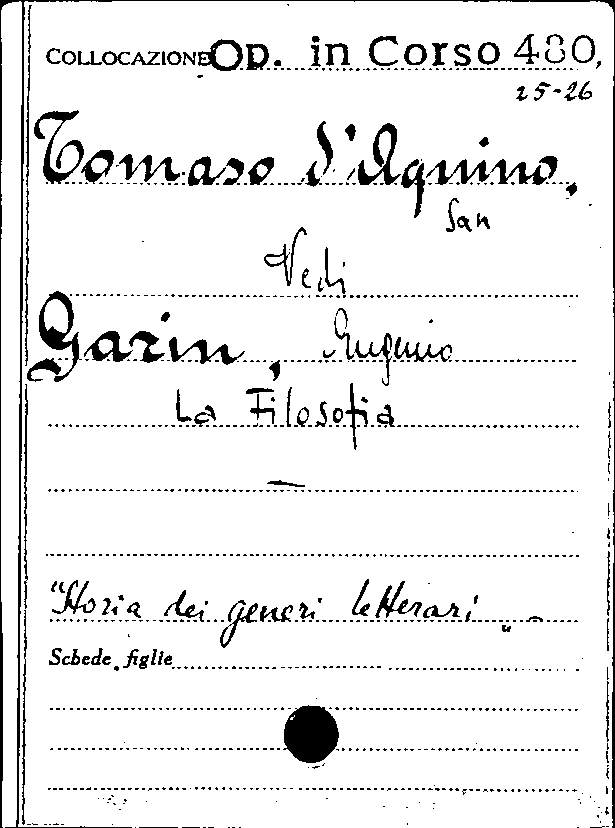 COLLOCAZIONE Op. in Corso 480,
25-26
Tomaso d'Aquino,
San
Vedi
Garin, Eugenio
La Filosofia
—
"Storia dei generi letterari„ -
Schede figlie